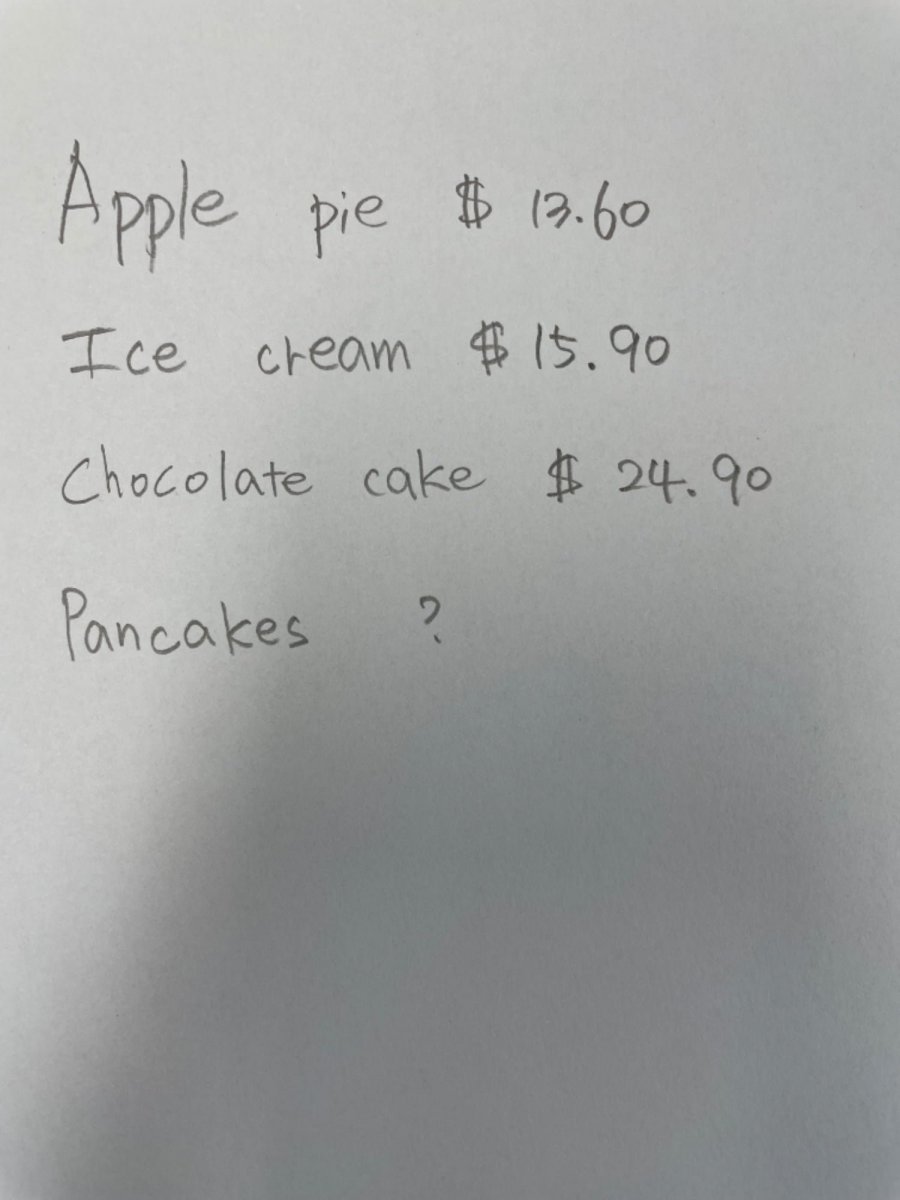 Apple pie $ 13.60
Ice cream $ 15.90
Chocolate cake $ 24.90
Pancakes ?